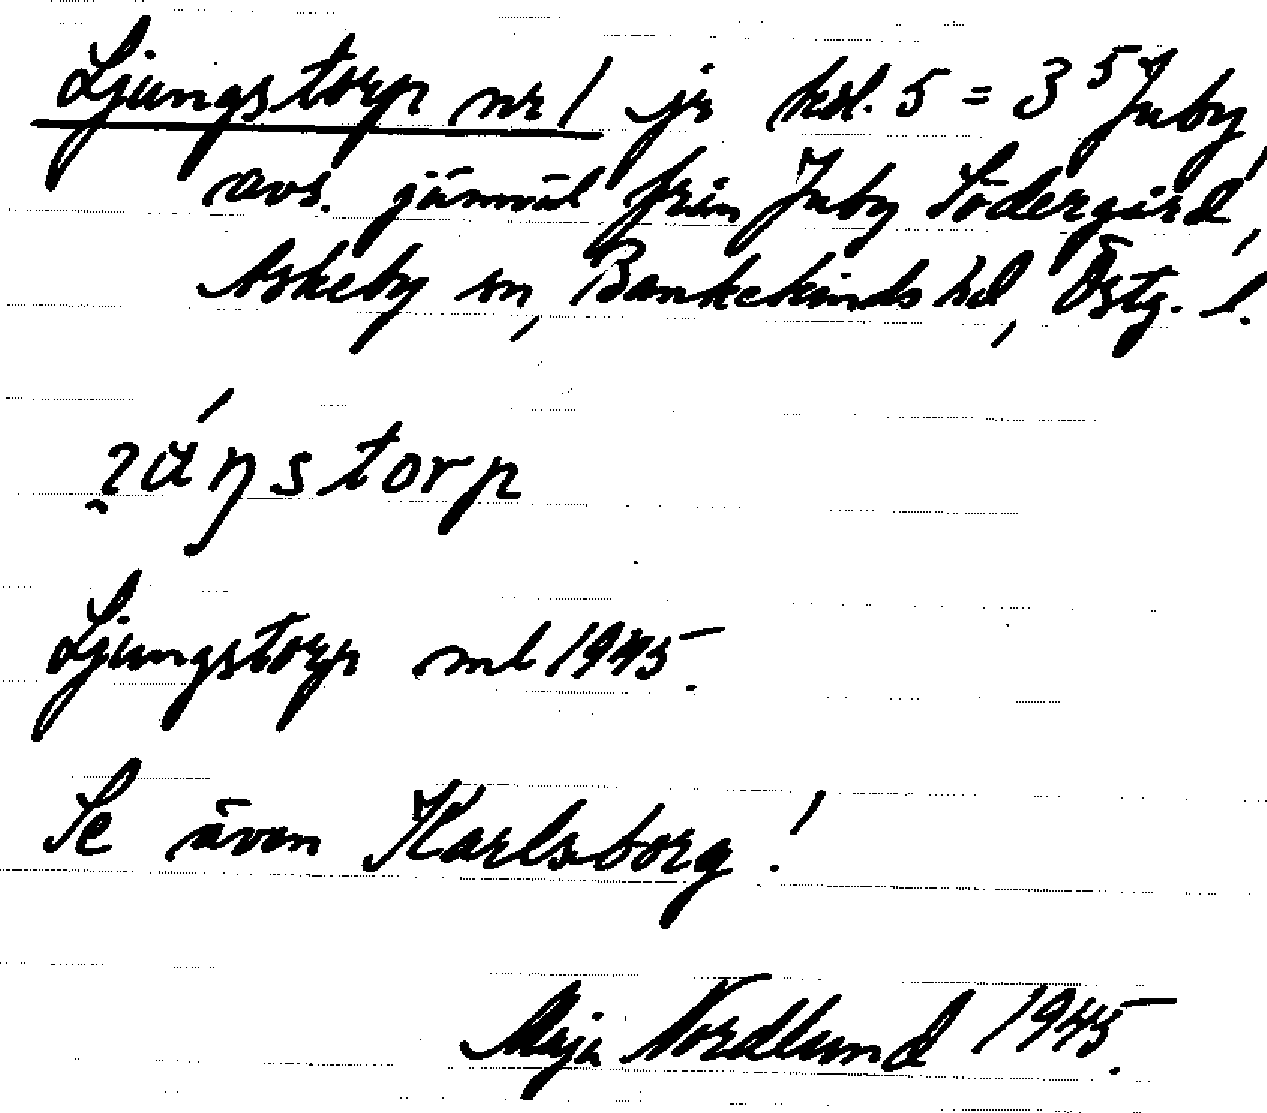 Ljungstorp nr 1 jr hsl. 5 = 3⁵ Juby,
avs. jämväl från Juby Södergård,
Askeby sn, Bankekinds hd, Östg. l.
ʹ
Ljungstorp ml 1945.
Se även Karlsborg!
Maja Nordlund 1945.